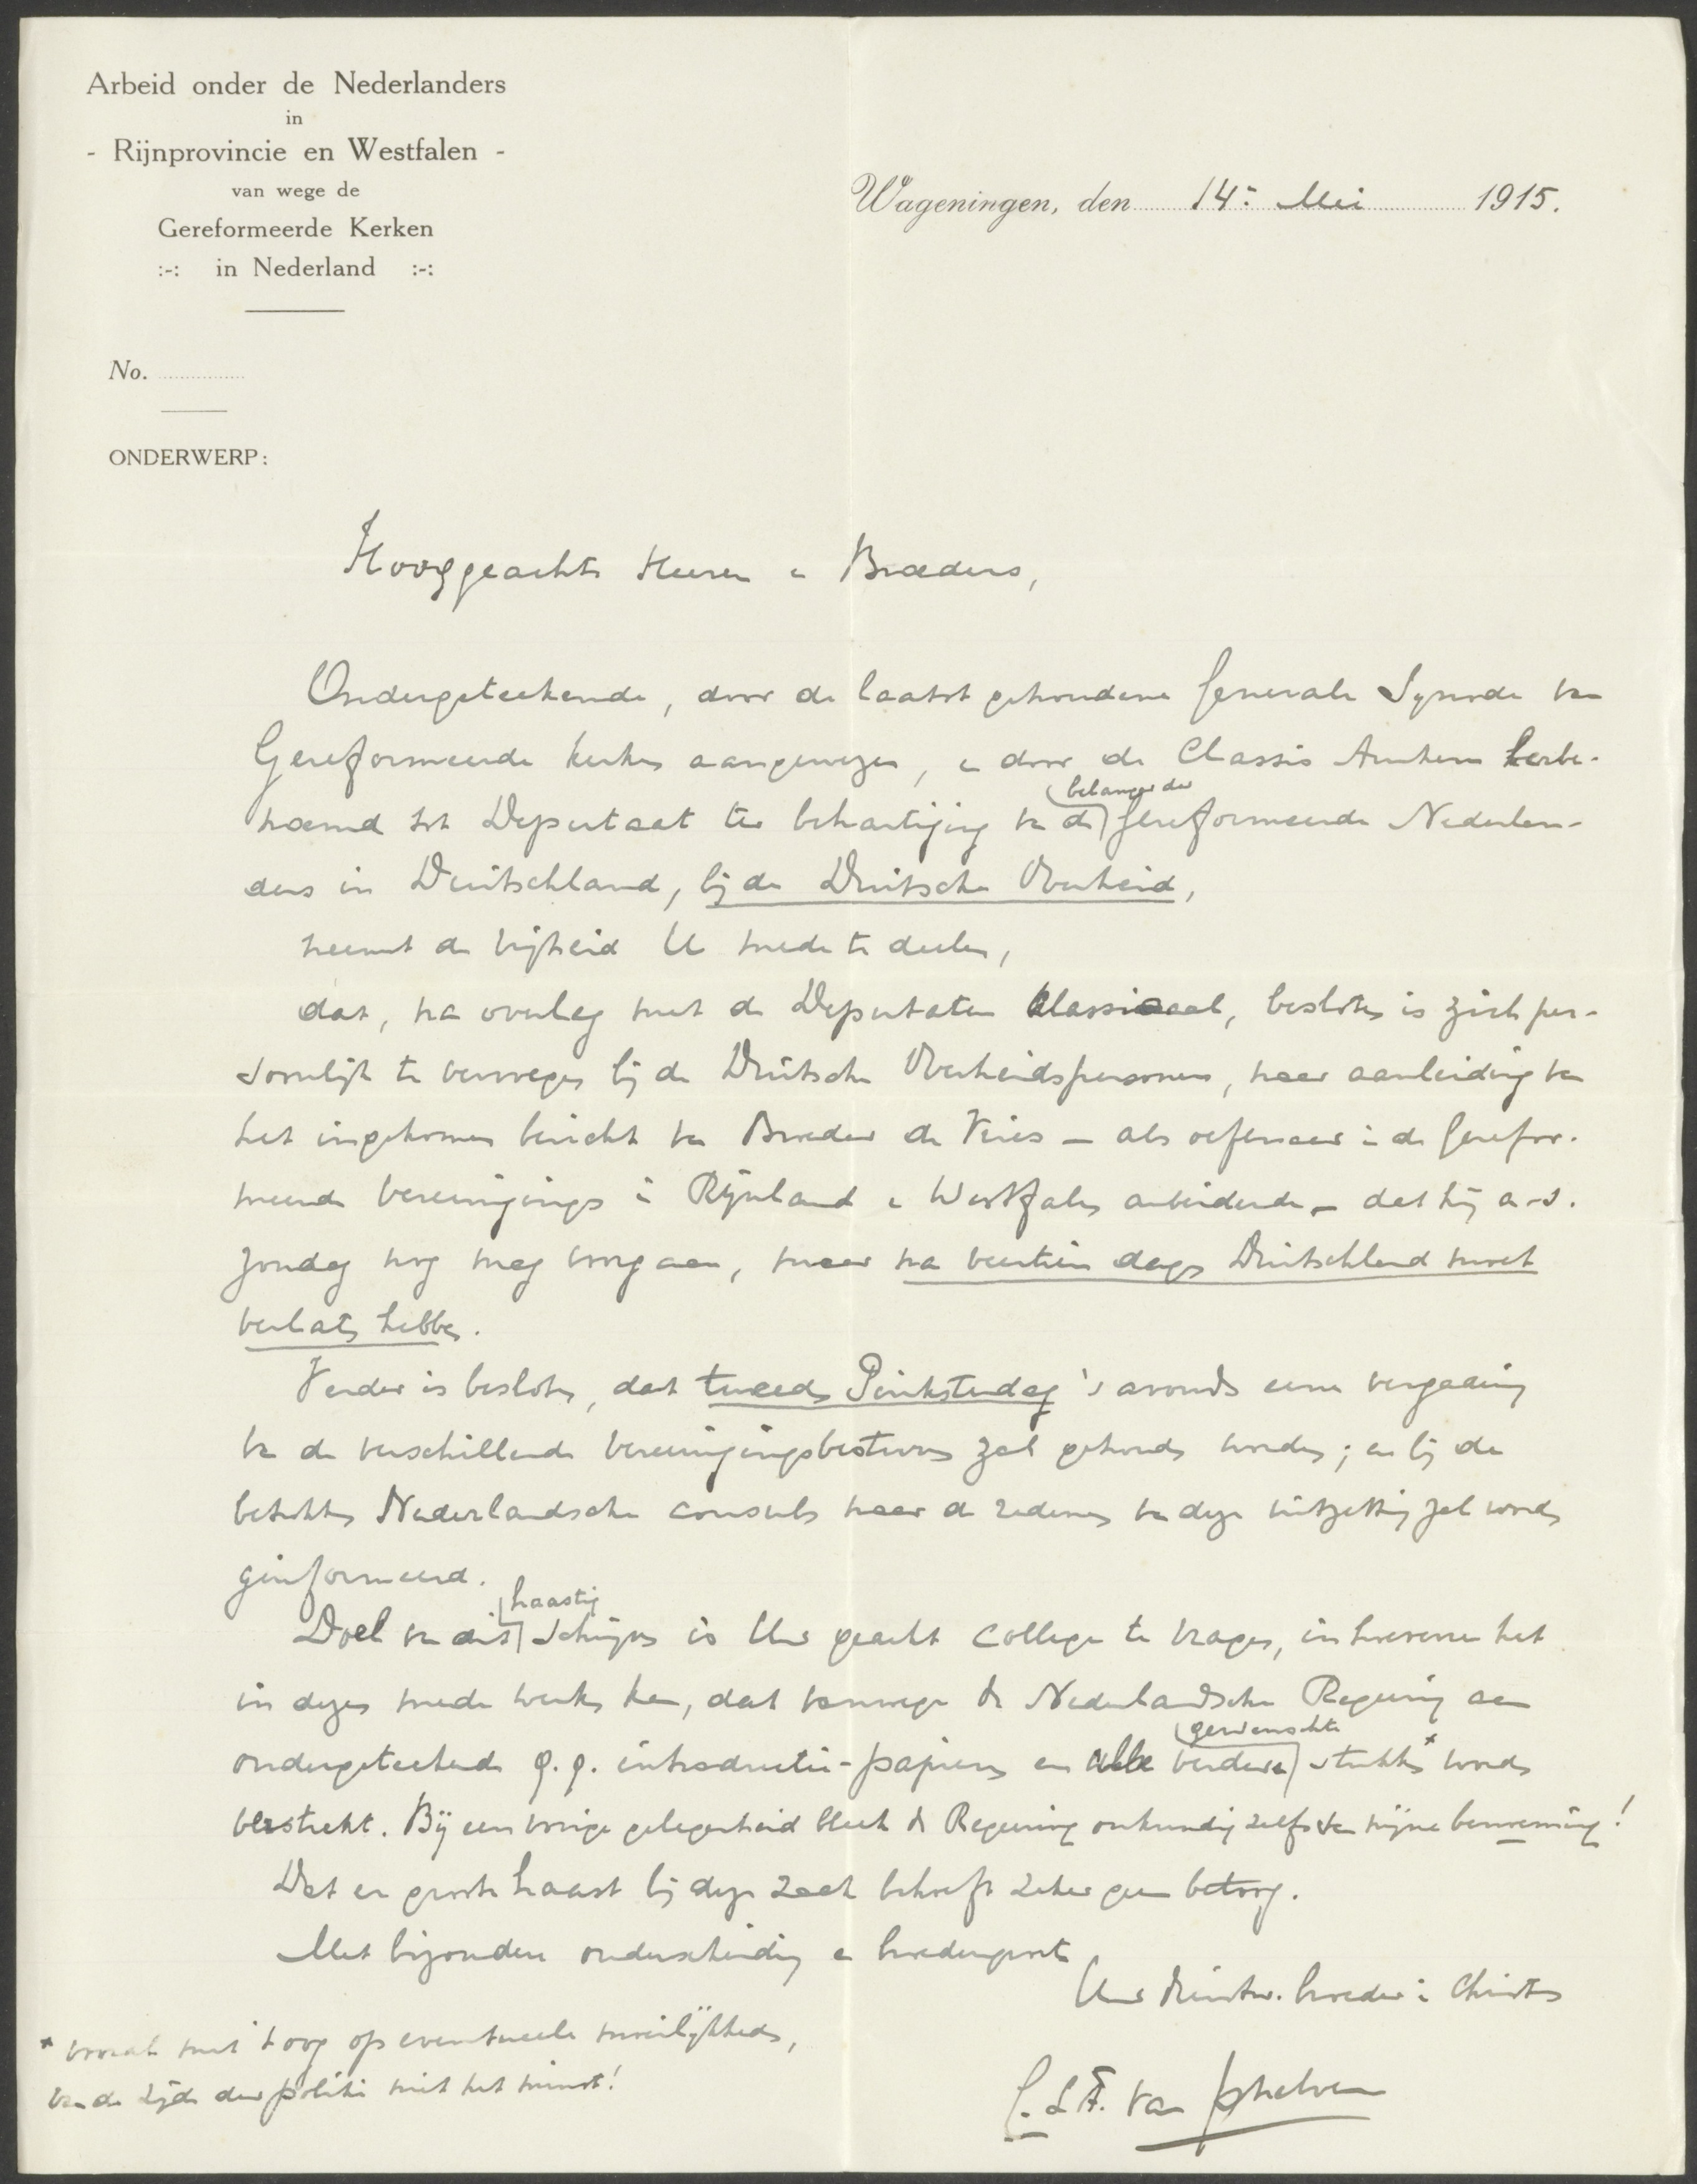 Arbeid onder de Nederlanders
in
- Rijnprovincie en Westfalen -
van wege de
Gereformeerde Kerken
:-: in Nederland :-:
Wageningen, den 14: Mei 1915.
No.
ONDERWERP:
Hooggeachte Heeren en Broeders,
Ondergeteekende, door de laatst gehoudene Generale Synode van
Gereformeerde Kerken aangewezen, en door de Classis Arnhem herbe-
noemd tot Deputaat ter behartiging van de belangen der Gereformeerde Nederlan-
ders in Duitschland, bij de Duitsche Overheid,
neemt de vrijheid U mede te deelen,
dat, na overleg met de Deputaten Classicaal, besloten is zich per-
soonlijk te vervoegen bij de Duitsche Overheidspersonen, naar aanleiding van
het ingekomen bericht van Broeder de Vries - als oefenaar in de Gerefor-
meerde Vereenigingen in Rijnland en Westfalen arbeidende - dat hij a.s.
Zondag nog mag voorgaan, maar na veertien dagen Duitschland moet
verlaten hebben.
Verder is besloten, dat tweeden Pinksterdag 's avonds eene vergadering
van de verschillende Vereenigingsbesturen zal gehouden worden; en bij de
betrokken Nederlandsche consuls naar de redenen van deze uitzetting zal worden
geïnformeerd.
Doel van dit haastig schrijven is Uw geacht college te vragen, in hoeverre het
in dezen mede werken kan, dat vanwege de Nederlandsche Regeering aan
ondergeteekende q.q. introductie-papieren en alle verdere gewenschte stukken* worden
verstrekt. Bij een vorige gelegenheid bleek de Regeering onkundig zelfs van mijne benoeming!
Dat er groote haast bij deze zaak behoeft zeker geen betoog.
Met bijzondere onderscheiding en broedergroete
Uw dienstw. broeder in Christus
C. L. F. van Schelven
* vooral met 't oog op eventueele moeilijkheden,
van de zijde der politie niet het minst!